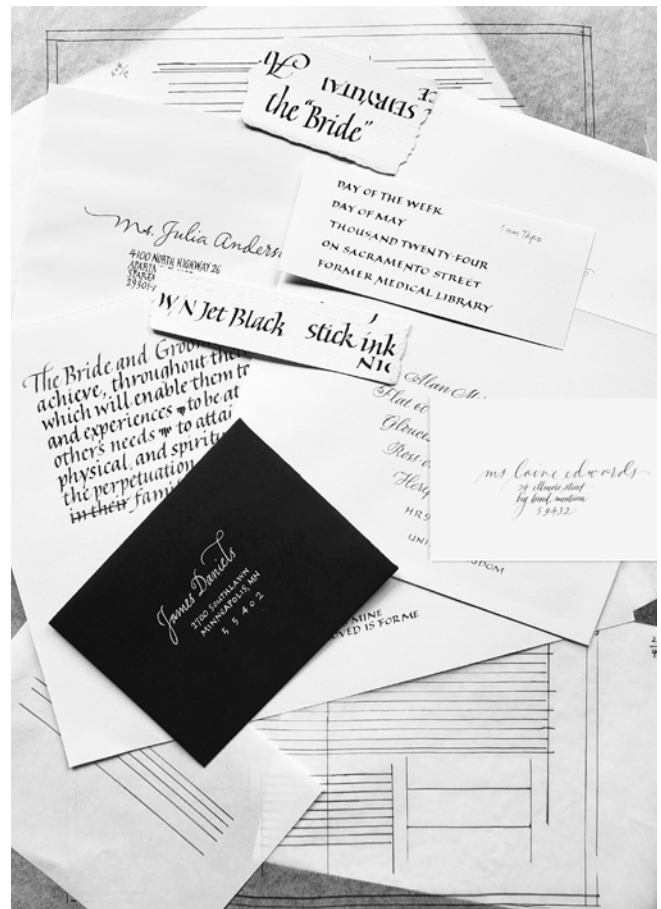 the "Bride"
DAY OF THE WEEK
DAY OF MAY
THOUSAND TWENTY-FOUR
ON SACRAMENTO STREET
FORMER MEDICAL LIBRARY
Ms. Julia Anders
4100 NORTH HIGHWAY 26
29301
W N Jet Black stick ink
The Bride and Groom
achieve, throughout
which will enable them to
and experiences to be at
others needs to attai
physical, and spiritu
the perpetuation
in their fami
Alan
Flat 60
Ross
HR9
UNI
GDOM
ms. laine edwards
24 illmore street
big bend, montana
59432
James Daniels
2700 SOUTHLAWN
MINNEAPOLIS, MN
55402
MINE
OVED IS FOR ME